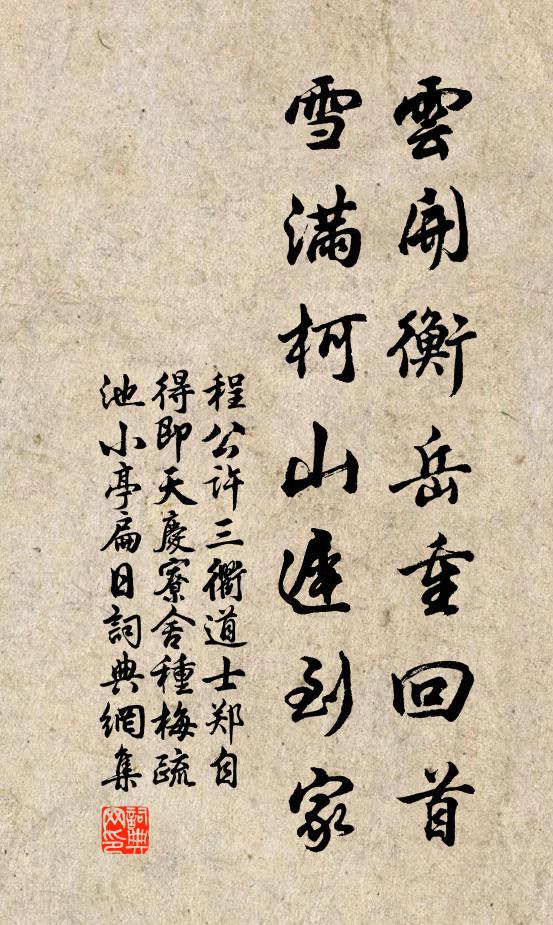 雲開衡岳重回首
雪滿柯山遲到家
程公許三衢道士郑自
得即天慶寮舍種梅疏
池小亭扁日詞典網集
詞典
网印